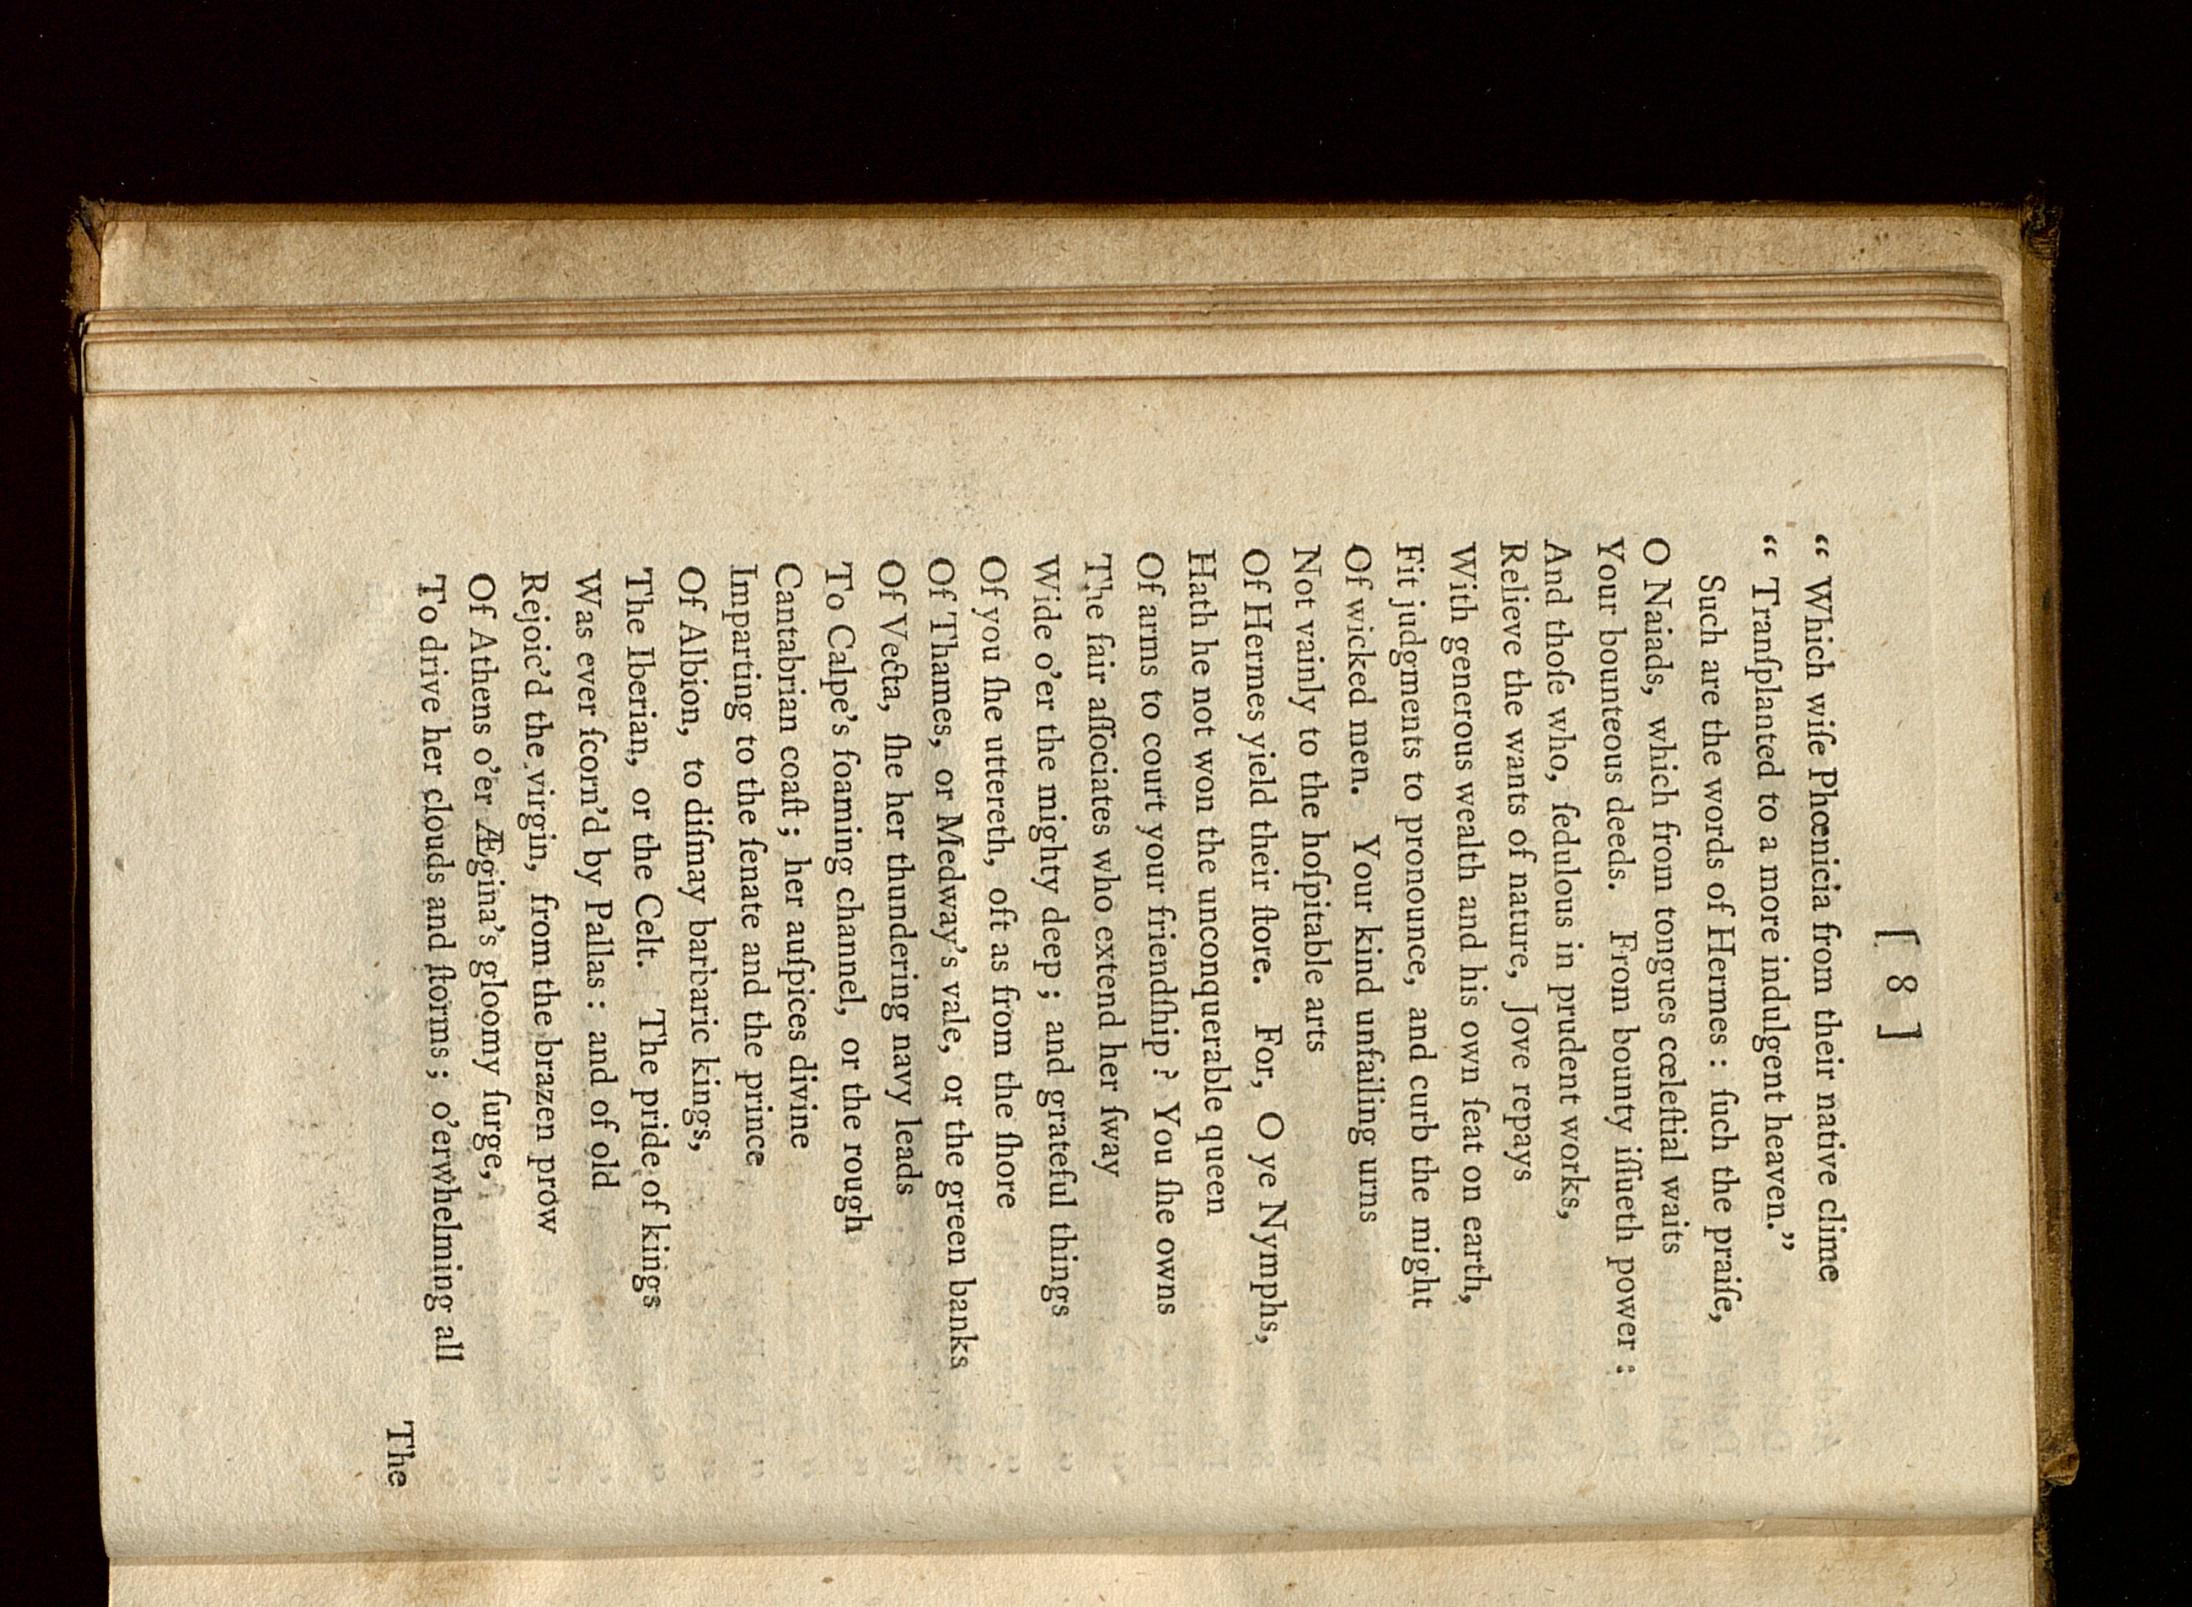 [ 8 ]
“ Which wiſe Phœnicia from their native clime
“ Tranſplanted to a more indulgent heaven.”
Such are the words of Hermes : ſuch the praiſe,
O Naiads, which from tongues cœleſtial waits
Your bounteous deeds. From bounty iſſueth power :
And thoſe who, ſedulous in prudent works,
Relieve the wants of nature, Jove repays
With generous wealth and his own ſeat on earth,
Fit judgments to pronounce, and curb the might
Of wicked men. Your kind unfailing urns
Not vainly to the hoſpitable arts
Of Hermes yield their ſtore. For, O ye Nymphs,
Hath he not won the unconquerable queen
Of arms to court your friendſhip ? You ſhe owns
The fair aſſociates who extend her ſway
Wide o’er the mighty deep ; and grateful things
Of you ſhe uttereth, oft as from the ſhore
Of Thames, or Medway’s vale, or the green banks
Of Vecta, ſhe her thundering navy leads
To Calpe’s foaming channel, or the rough
Cantabrian coaſt ; her auſpices divine
Imparting to the ſenate and the prince
Of Albion, to diſmay barbaric kings,
The Iberian, or the Celt. The pride of kings
Was ever ſcorn’d by Pallas : and of old
Rejoic’d the virgin, from the brazen prow
Of Athens o’er Ægina’s gloomy ſurge,
To drive her clouds and ſtorms ; o’erwhelming all
The